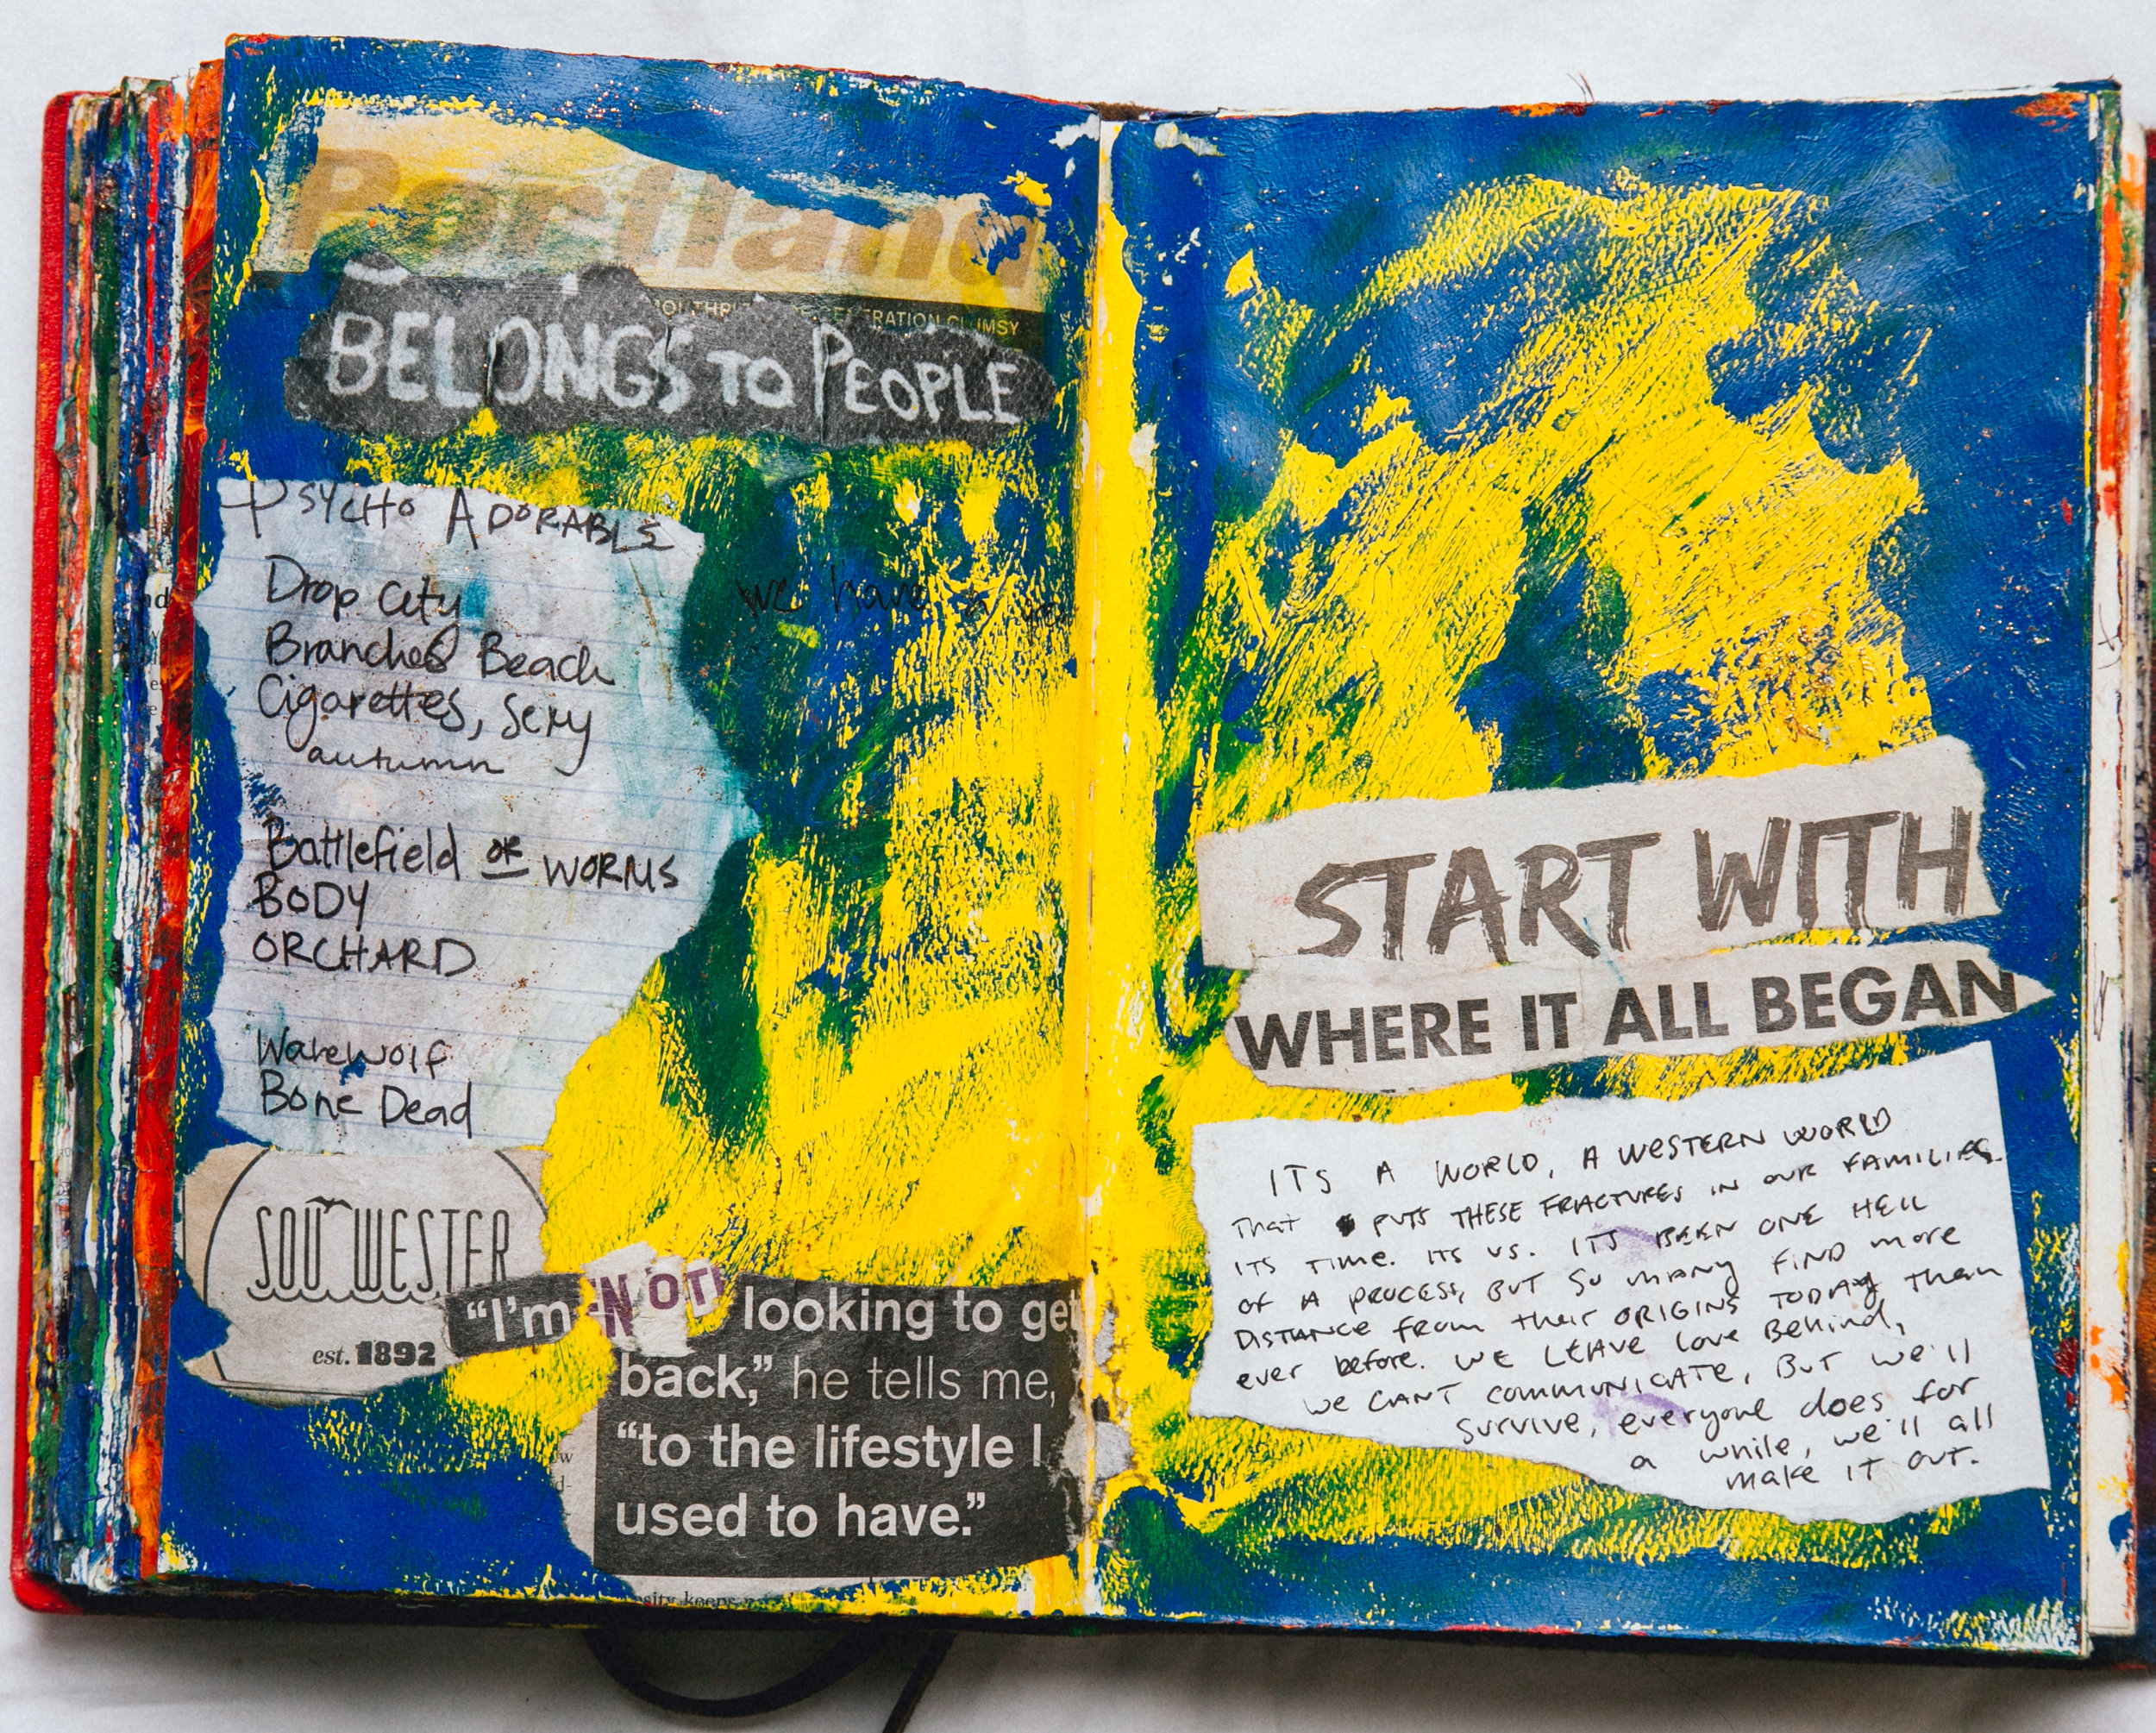 Portland
BELONGS TO PEOPLE
PSYCHO ADORABLE
Drop City
Branches Beach
Cigarettes, Sexy
autumn
we have a
Battlefield OF WORMS
BODY
ORCHARD
Warewolf
Bone Dead
SOU'WESTER
est. 1892
"I'm NOT looking to get
back," he tells me,
"to the lifestyle I
used to have."
START WITH
WHERE IT ALL BEGAN
ITS A WORLD, A WESTERN WORLD
That PUTS THESE FRACTURES IN OUR FAMILIES.
ITS TIME. ITS US. ITS BEEN ONE HELL
OF A PROCESS, BUT SO MANY FIND MORE
DISTANCE From their ORIGINS TODAY than
ever before. WE LEAVE LOVE BEHIND,
WE CANT COMMUNICATE, BUT WE'll
SURVIVE, everyone does for
a while, we'll all
make IT OUT.